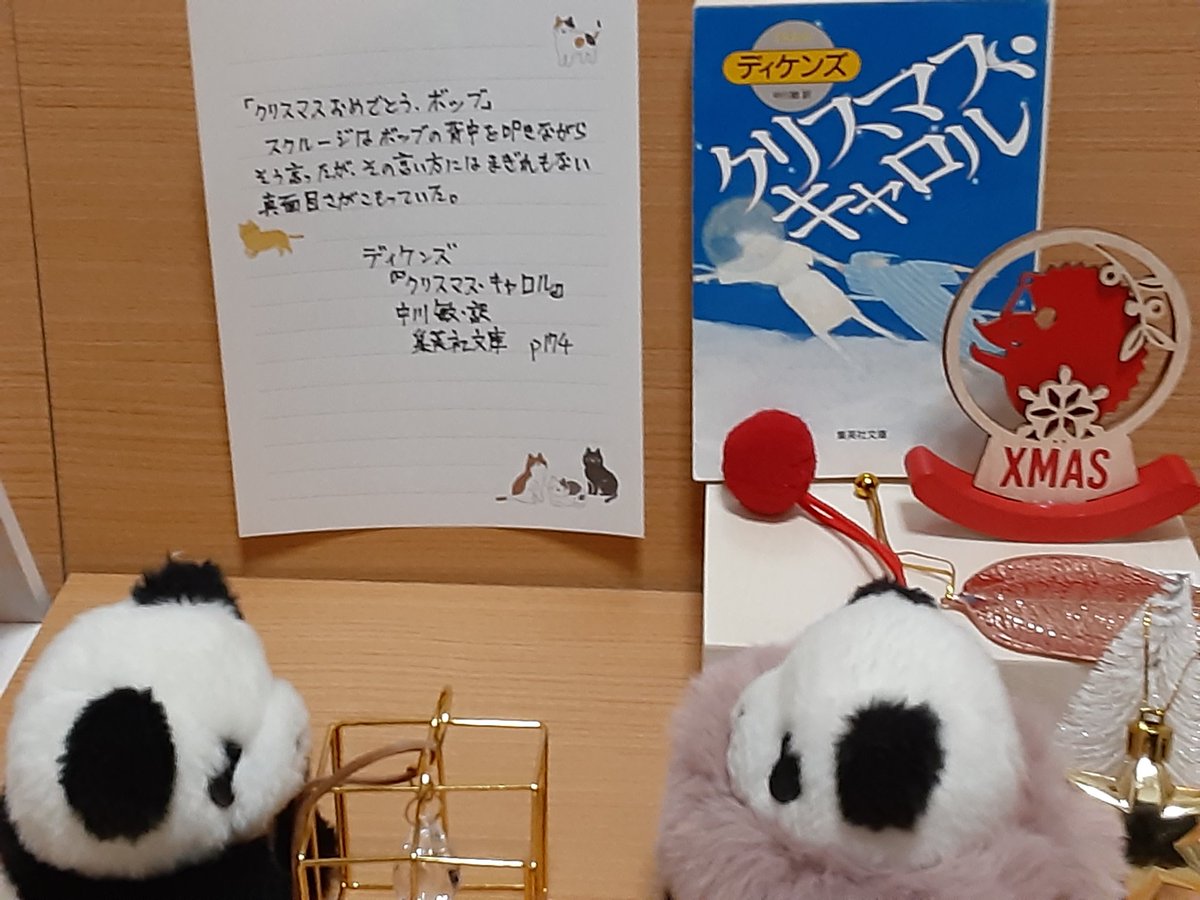 「クリスマスおめでとう、ボッブ」
スクルージはボッブの背中を叩きながら
そう言ったが、その言い方にはまぎれもない
真面目さがこもっていた。
ディケンズ
『クリスマス・キャロル』
中川敏・訳
集英社文庫 p174
ディケンズ
中川敏 訳
クリスマス・
キャロル
集英社文庫
XMAS